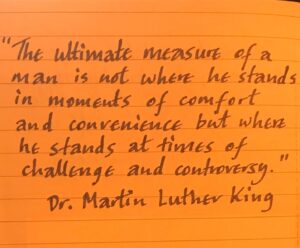 "The ultimate measure of a
man is not where he stands
in moments of comfort
and convenience but where
he stands at times of
challenge and controversy."
Dr. Martin Luther King